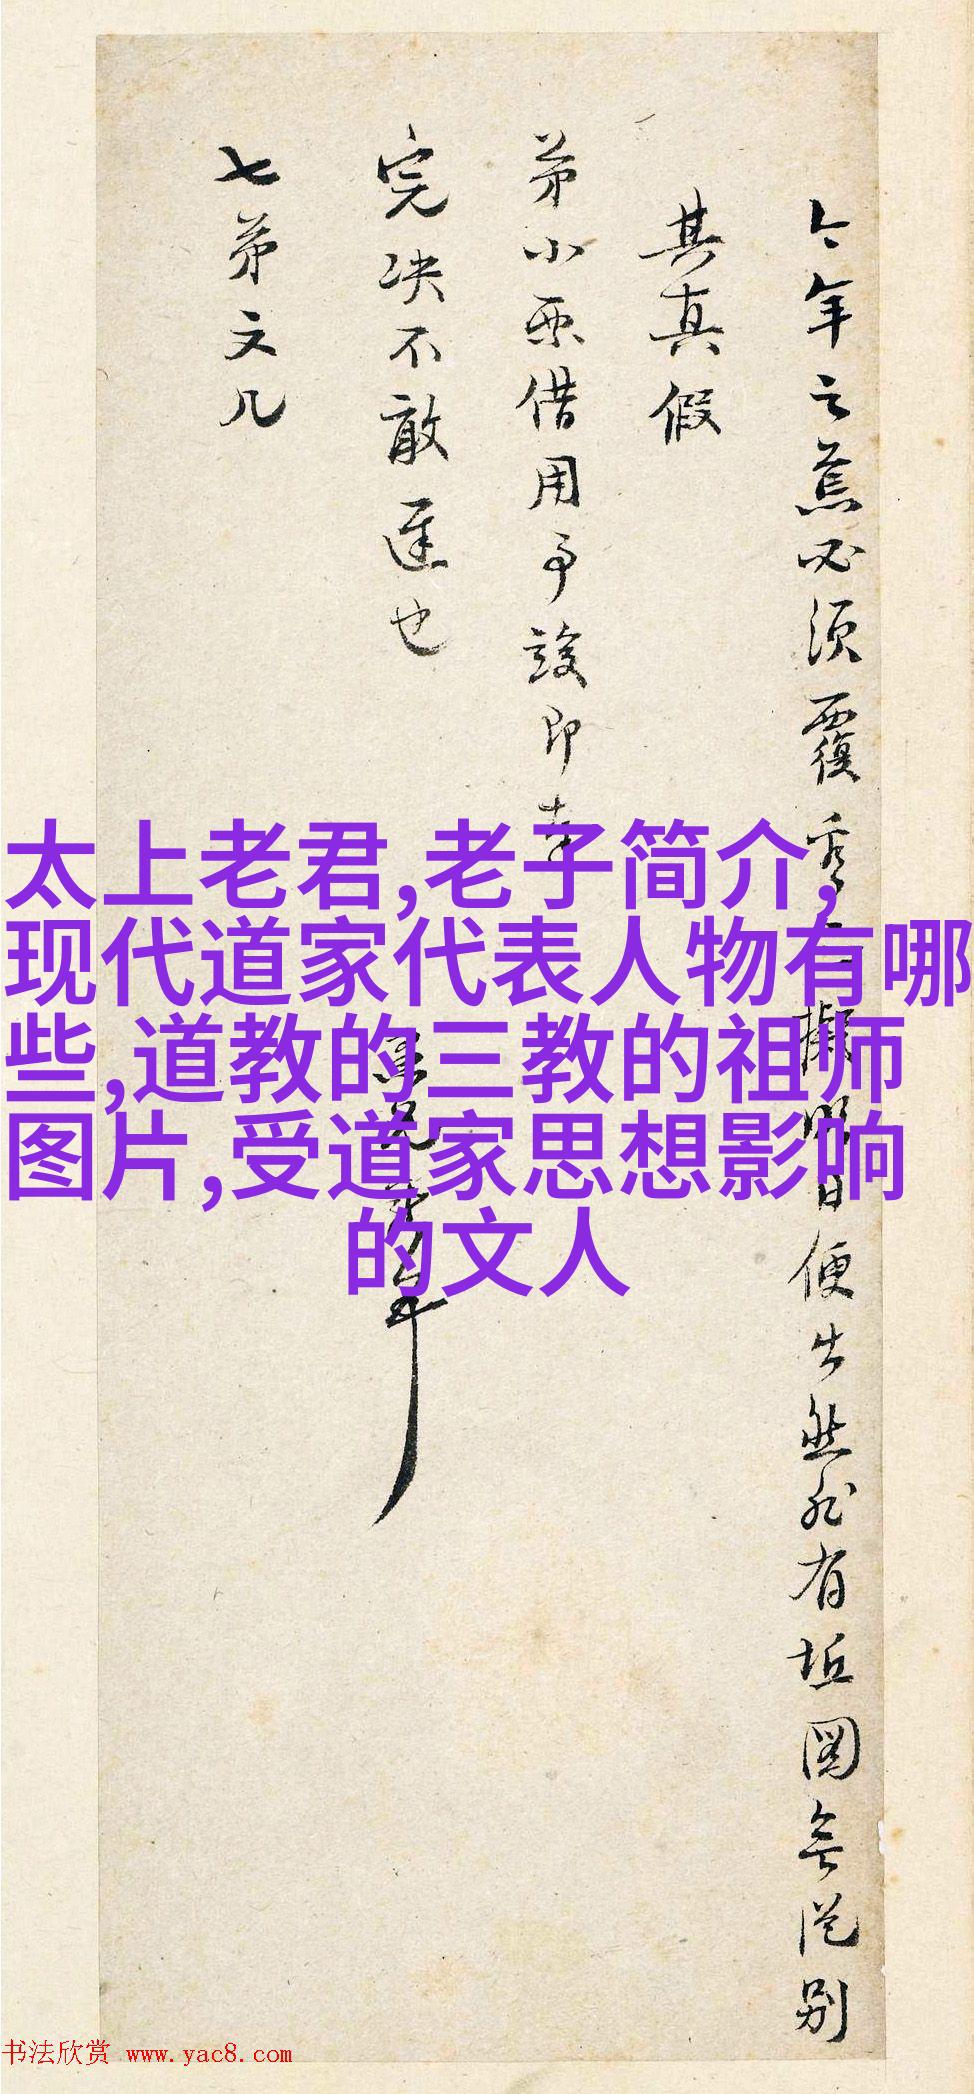 今年之蕉必須覆
便出然非有址圖無從別
其真假
弟小票借用事竣即幸
完决不敢遲也
七弟文几
愚兄
太上老君,老子简介,
现代道家代表人物有哪
些,道教的三教的祖师
图片,受道家思想影响
的文人
书法欣赏 www.yac8.com